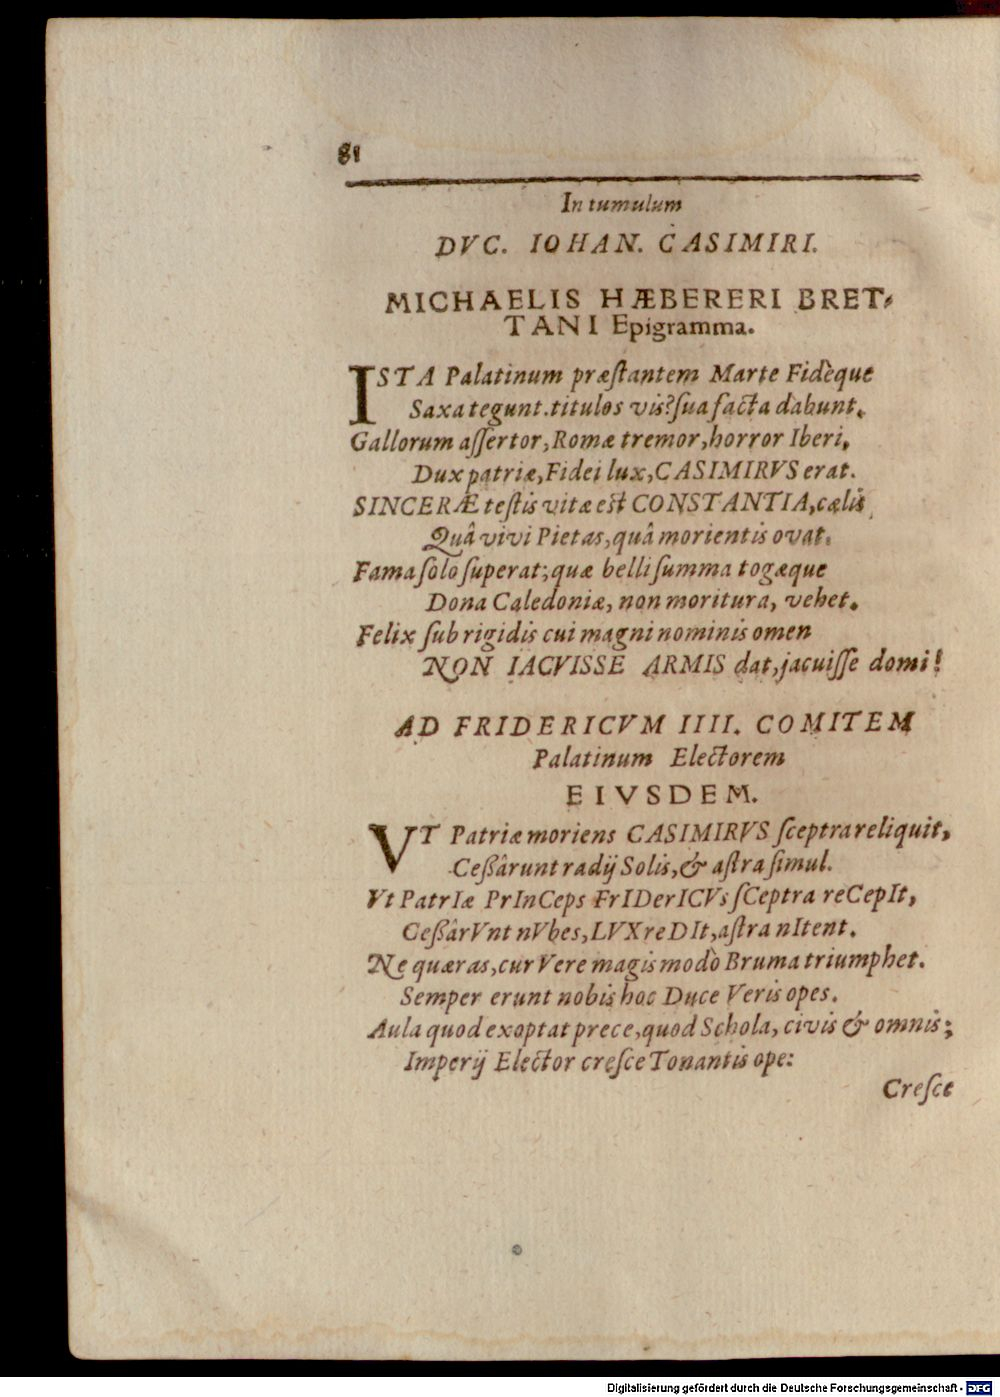 81
In tumulum
DVC. IOHAN. CASIMIRI.
MICHAELIS HÆBERERI BRET-
TANI Epigramma.
ISTA Palatinum præſtantem Marte Fidèque
Saxa tegunt. titulos vis? ſua facta dabunt.
Gallorum aſſertor, Romæ tremor, horror Iberi,
Dux patriæ, Fidei lux, CASIMIRVS erat.
SINCERÆ teſtis vitæ est CONSTANTIA, cælis
Quâ vivi Pietas, quâ morientis ovat.
Fama ſolo ſuperat; quæ belli ſumma togæque
Dona Caledoniæ, non moritura, vehet.
Felix ſub rigidis cui magni nominis omen
NON IACVISSE ARMIS dat, jacuiſſe domi!
AD FRIDERICVM IIII. COMITEM
Palatinum Electorem
EIVSDEM.
VT Patriæ moriens CASIMIRVS ſceptra reliquit,
Ceßârunt radij Solis, & aſtra ſimul.
Vt PatrIæ PrInCeps FrIDerICVs ſCeptra reCepIt,
CeßârVnt nVbes, LVX reDIt, aſtra nItent.
Ne quæras, cur Vere magis modò Bruma triumphet.
Semper erunt nobis hoc Duce Veris opes.
Aula quod exoptat prece, quod Schola, civis & omnis;
Imperij Elector creſce Tonantis ope:
Creſce
Digitalisierung gefördert durch die Deutsche Forschungsgemeinschaft - DFG